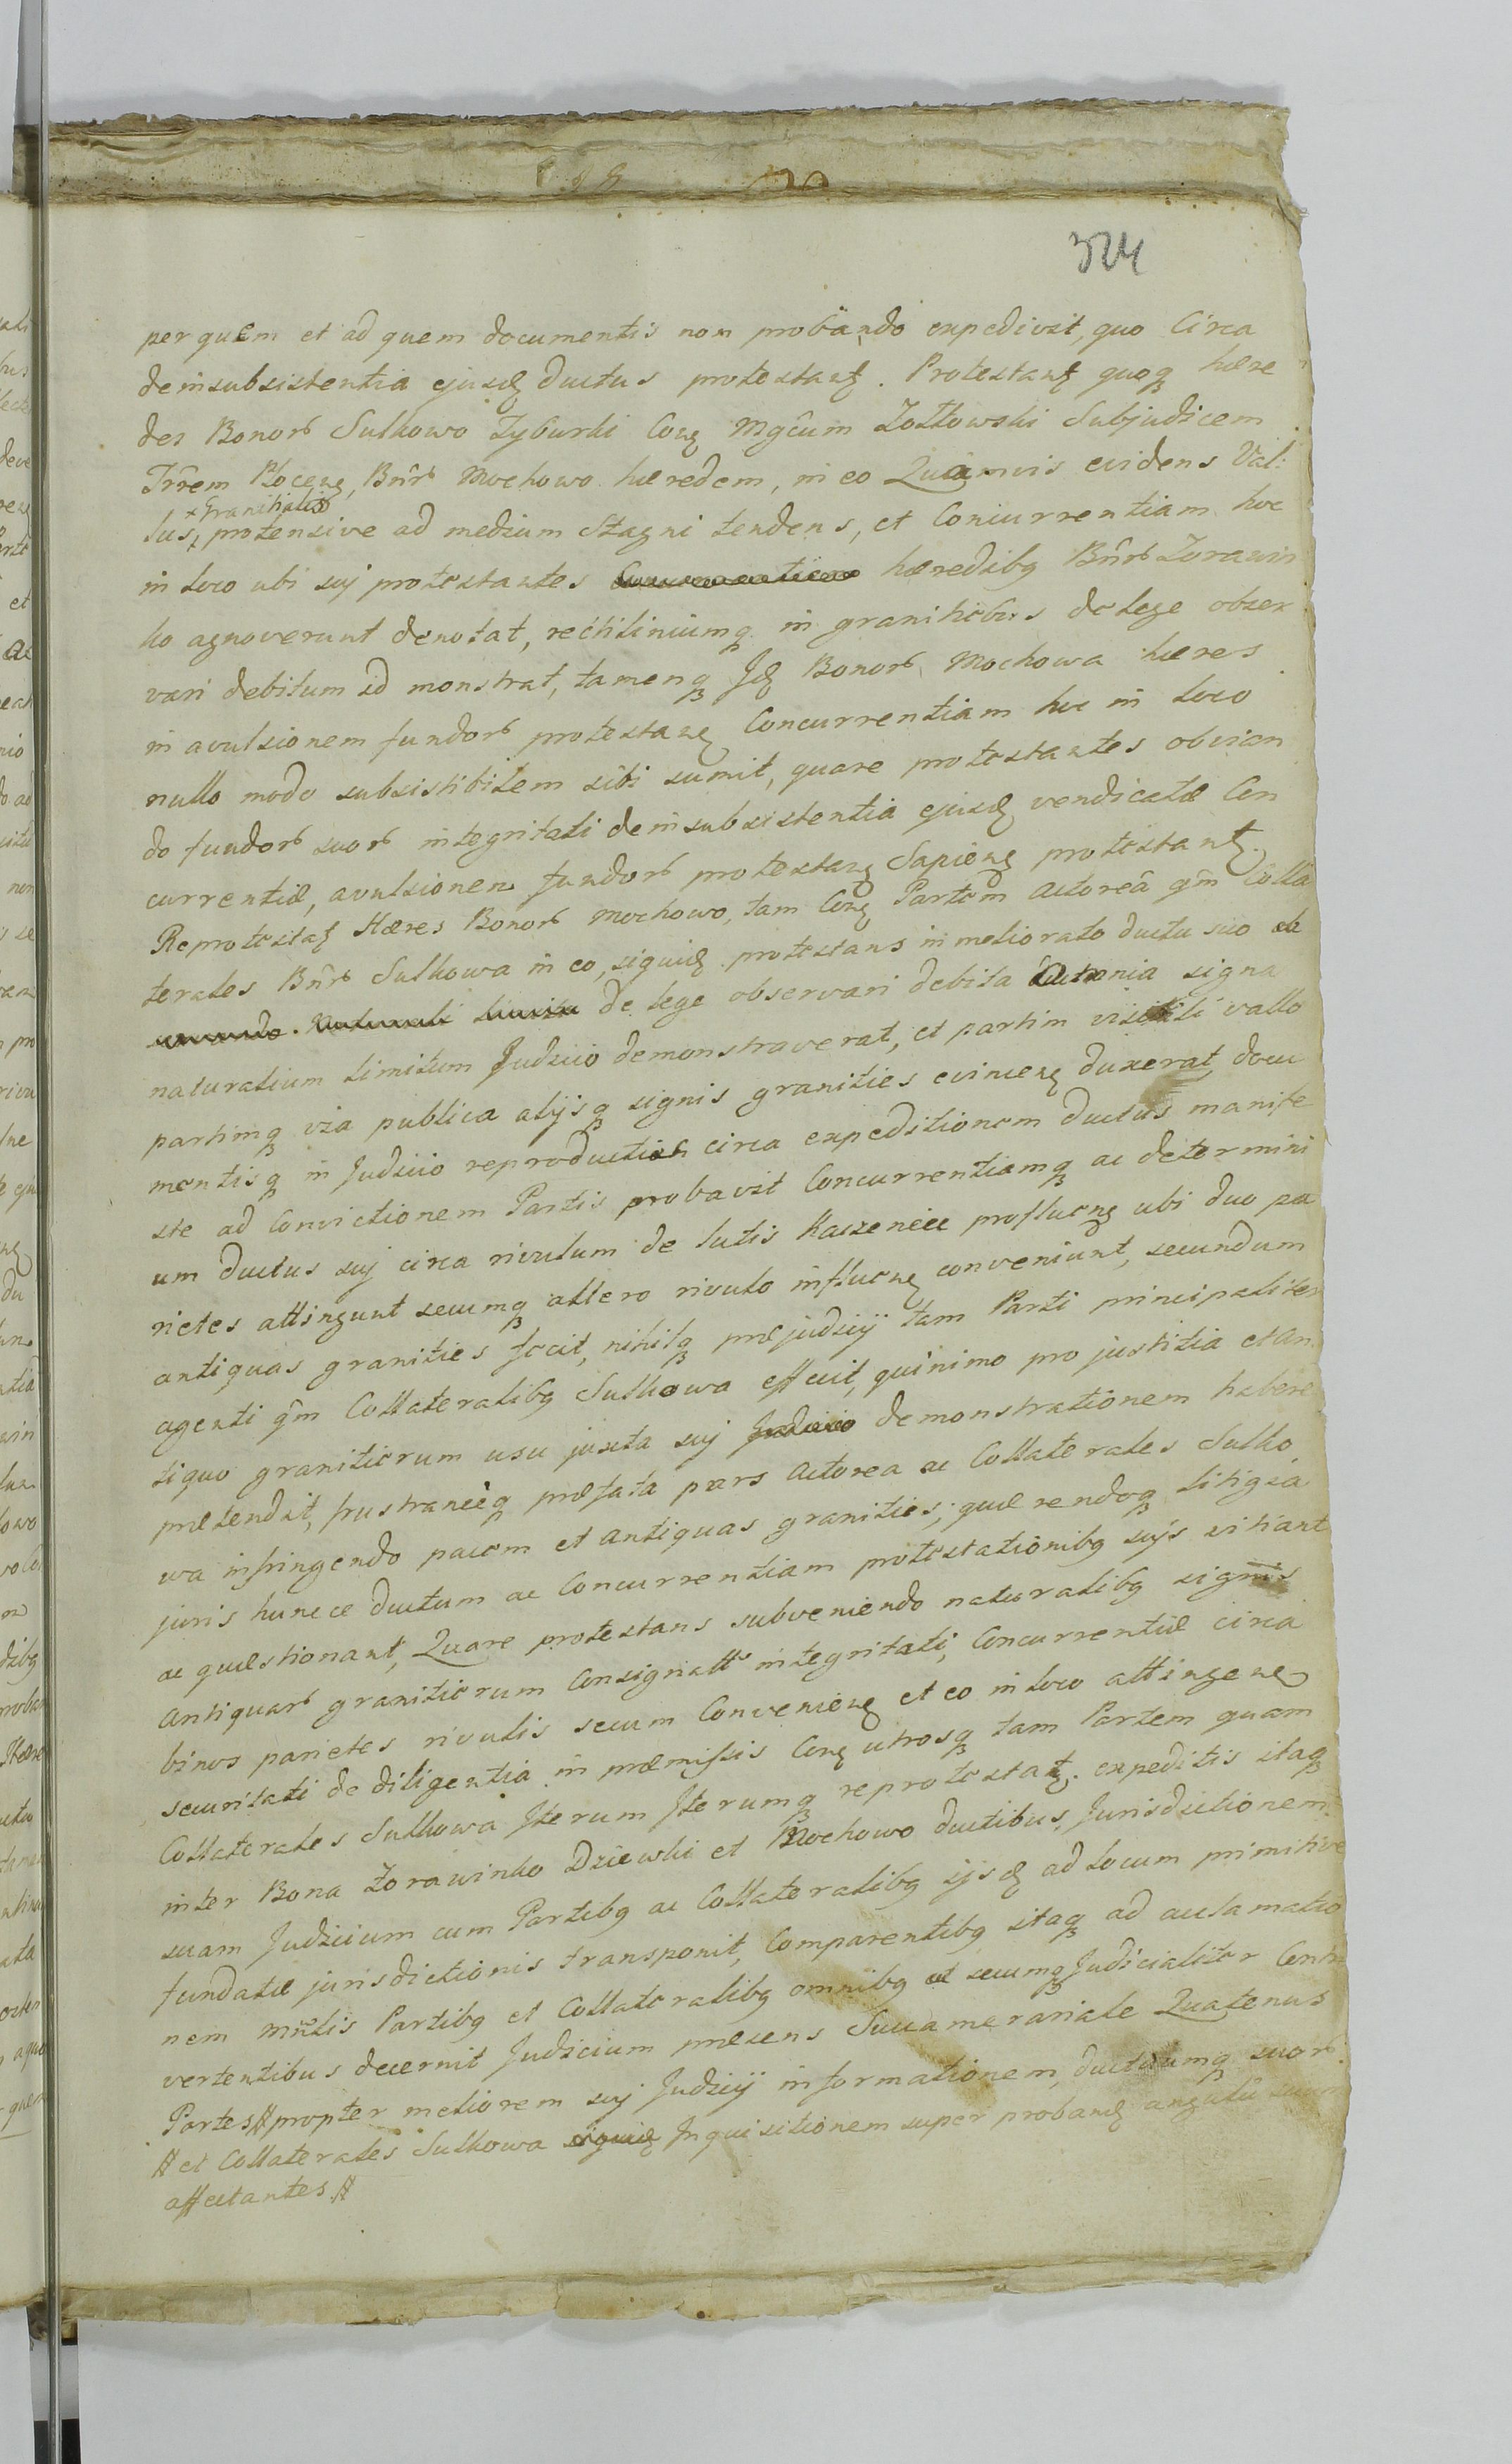 324
per quem et ad quem documentis non probando expedivit, quo Circa
de insubsistentia ejusdę ductus protestantę. Protestantę quoqꝫ hære
des Bonorꝝ Sulkowo Zyburki Conę Mgĉum Zołtowski Subjudicem
Trr̂em Płocenę, Bnr̂ꝝ Mochowo hæredem, in eo Quamvis evidens Val:
+ Granitialis
lus, protensive ad medium Stagni tendens, et Concurrentiam hoc
in loco ubi suj protestantes hæredibꝫ Bnr̂ꝝ Zorawin
ko agnoverunt denotat, rectiliniumqꝫ in granitiebus de lege obser
vari debitum id monstrat, tamenqꝫ Jdę Bonorꝝ Mochowa hæres
in avulsionem fundorꝝ protestanę Concurrentiam hoc in loco
nullo modo subsistibilem sibi sumit, quare protestantes obvian
do fundorꝝ suorꝝ integritati de insubsistentia ejusdę vendicatæ Con
currentiæ, avulsionem fundorꝝ protestanę Sapienę protestantę.
Reprotestatę Hæres Bonorꝝ Mochowo, tam Conę Partem Actoreâ qm̂ Colla
terales Bnr̂ꝝ Sulkowa in eo, siquidę protestans in meliorato ductu suo
de lege observari debita signa
naturalium limitum Judicio demonstraverat, et partim visibili vallo
partimqꝫ via publica alijsqꝫ signis granities evincenę duxerat, docu
mentisqꝫ in Judicio reproductis circa expeditionem ductus manife
ste ad Convictionem Partis probavit Concurrentiamqꝫ ac determini
um ductus suj circa rivulum de lutis profluenę ubi duo pa
rietes attingunt secumqꝫ altero rivulo influenę conveniunt, secundum
antiquas granities fecit, nihilqꝫ præjudicij tam Parti principaliter
agenti qm̂ Collateralibꝫ Sulkowa effecit, quinimo pro justitia et an
tiquo granitierum usu juxta suj demonstrationem habere
prætendit, frustraneèqꝫ præfata pars Actorea ac Collaterales Sulko
wa infringendo pacem et antiquas granities, quærendoqꝫ litigia
juris huncce ductum ac Concurrentiam protestationibꝫ suis vitiant
ac quæstionant, Quare protestans subveniendo naturalibꝫ signis
Antiquarꝝ granitierum Consignatt integritati, Concurrentiæ circa
binos parietes rivulis secum Convenienę et eo in loco attingenę
securitati de diligentia in præmissis Conę utrosqꝫ tam Partem quam
Collaterales Sulkowa Jterum Jterumqꝫ reprotestatę. expeditis itaqꝫ
inter Bona Zorawinko Dziewki et Mochowo ductibus, Jurisdictionem
suam Judicium cum Partibꝫ ac Collateralibꝫ ijsdę ad locum primitive
fundatæ jurisdictionis transponit, Comparentibꝫ itaqꝫ ad acclamatio
nem mn̂lis Partibꝫ et Collateralibꝫ omnibꝫ et secumqꝫ Judicialiter Contro
vertentibus decernit Judicium præsens Succamerariale Quatenus
Partes # propter meliorem suj Judicij informationem, ductuumqꝫ suorꝝ
# et Collaterales Sulkowa Jnquisitionem super probandę angulû
affectantes #